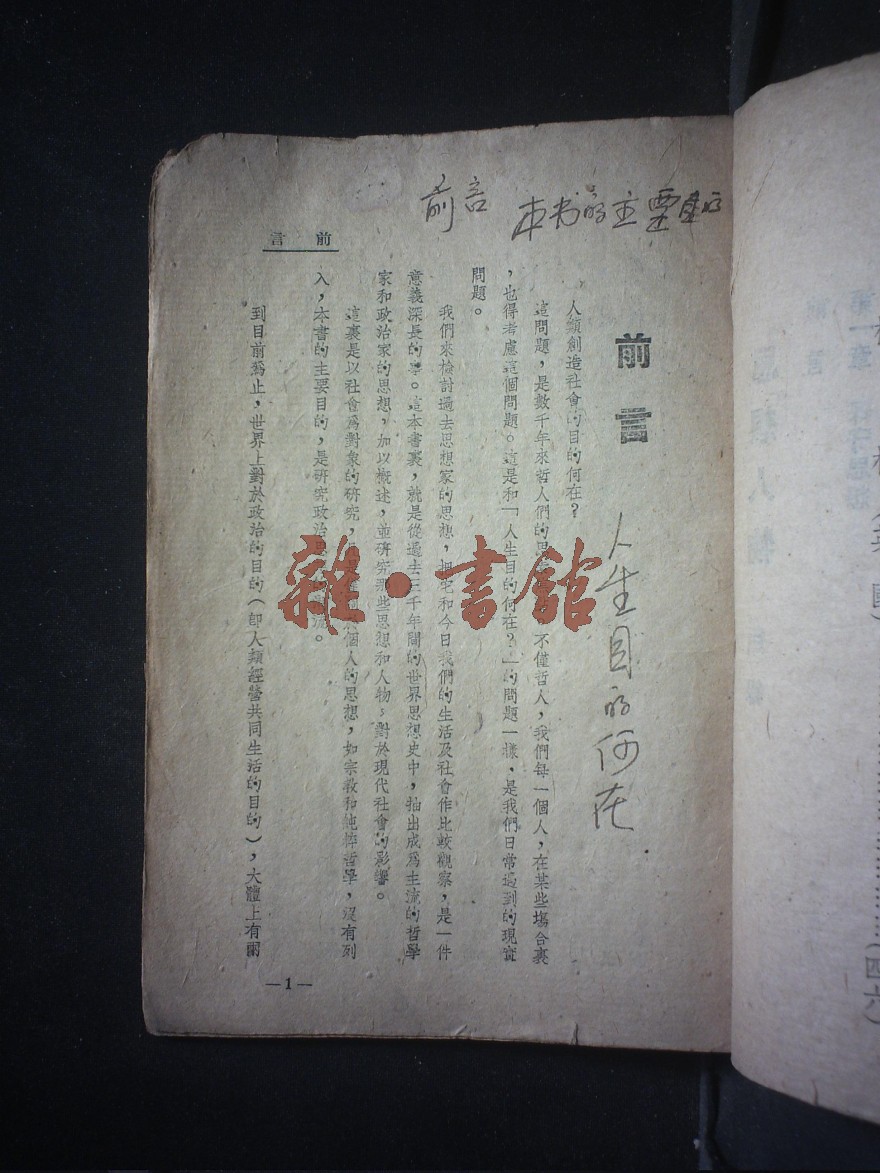 前言
本书的主要目的
言 前
前言
人生目的何在
人類創造社會的目的何在？
這問題，是數千年來哲人們的思
不僅哲人，我們每一個人，在某些塲合裏
，也得考慮這個問題。這是和「人生目的何在？」的問題一樣，是我們日常遇到的現實
問題。
我們來檢討過去思想家的思想，把它和今日我們的生活及社會作比較觀察，是一件
意義深長的事。這本書裏，就是從過去三千年間的世界思想史中，抽出成爲主流的哲學
家和政治家的思想，加以概述，並研究那些思想和人物，對於現代社會的影響。
這裏是以社會爲對象的研究，
個人的思想，如宗教和純粹哲學，沒有列
入，本書的主要目的，是研究政治思
流。
到目前爲止，世界上對於政治的目的（卽人類經營共同生活的目的），大體上有關
—1—
雜·書館
第一章
（四六）